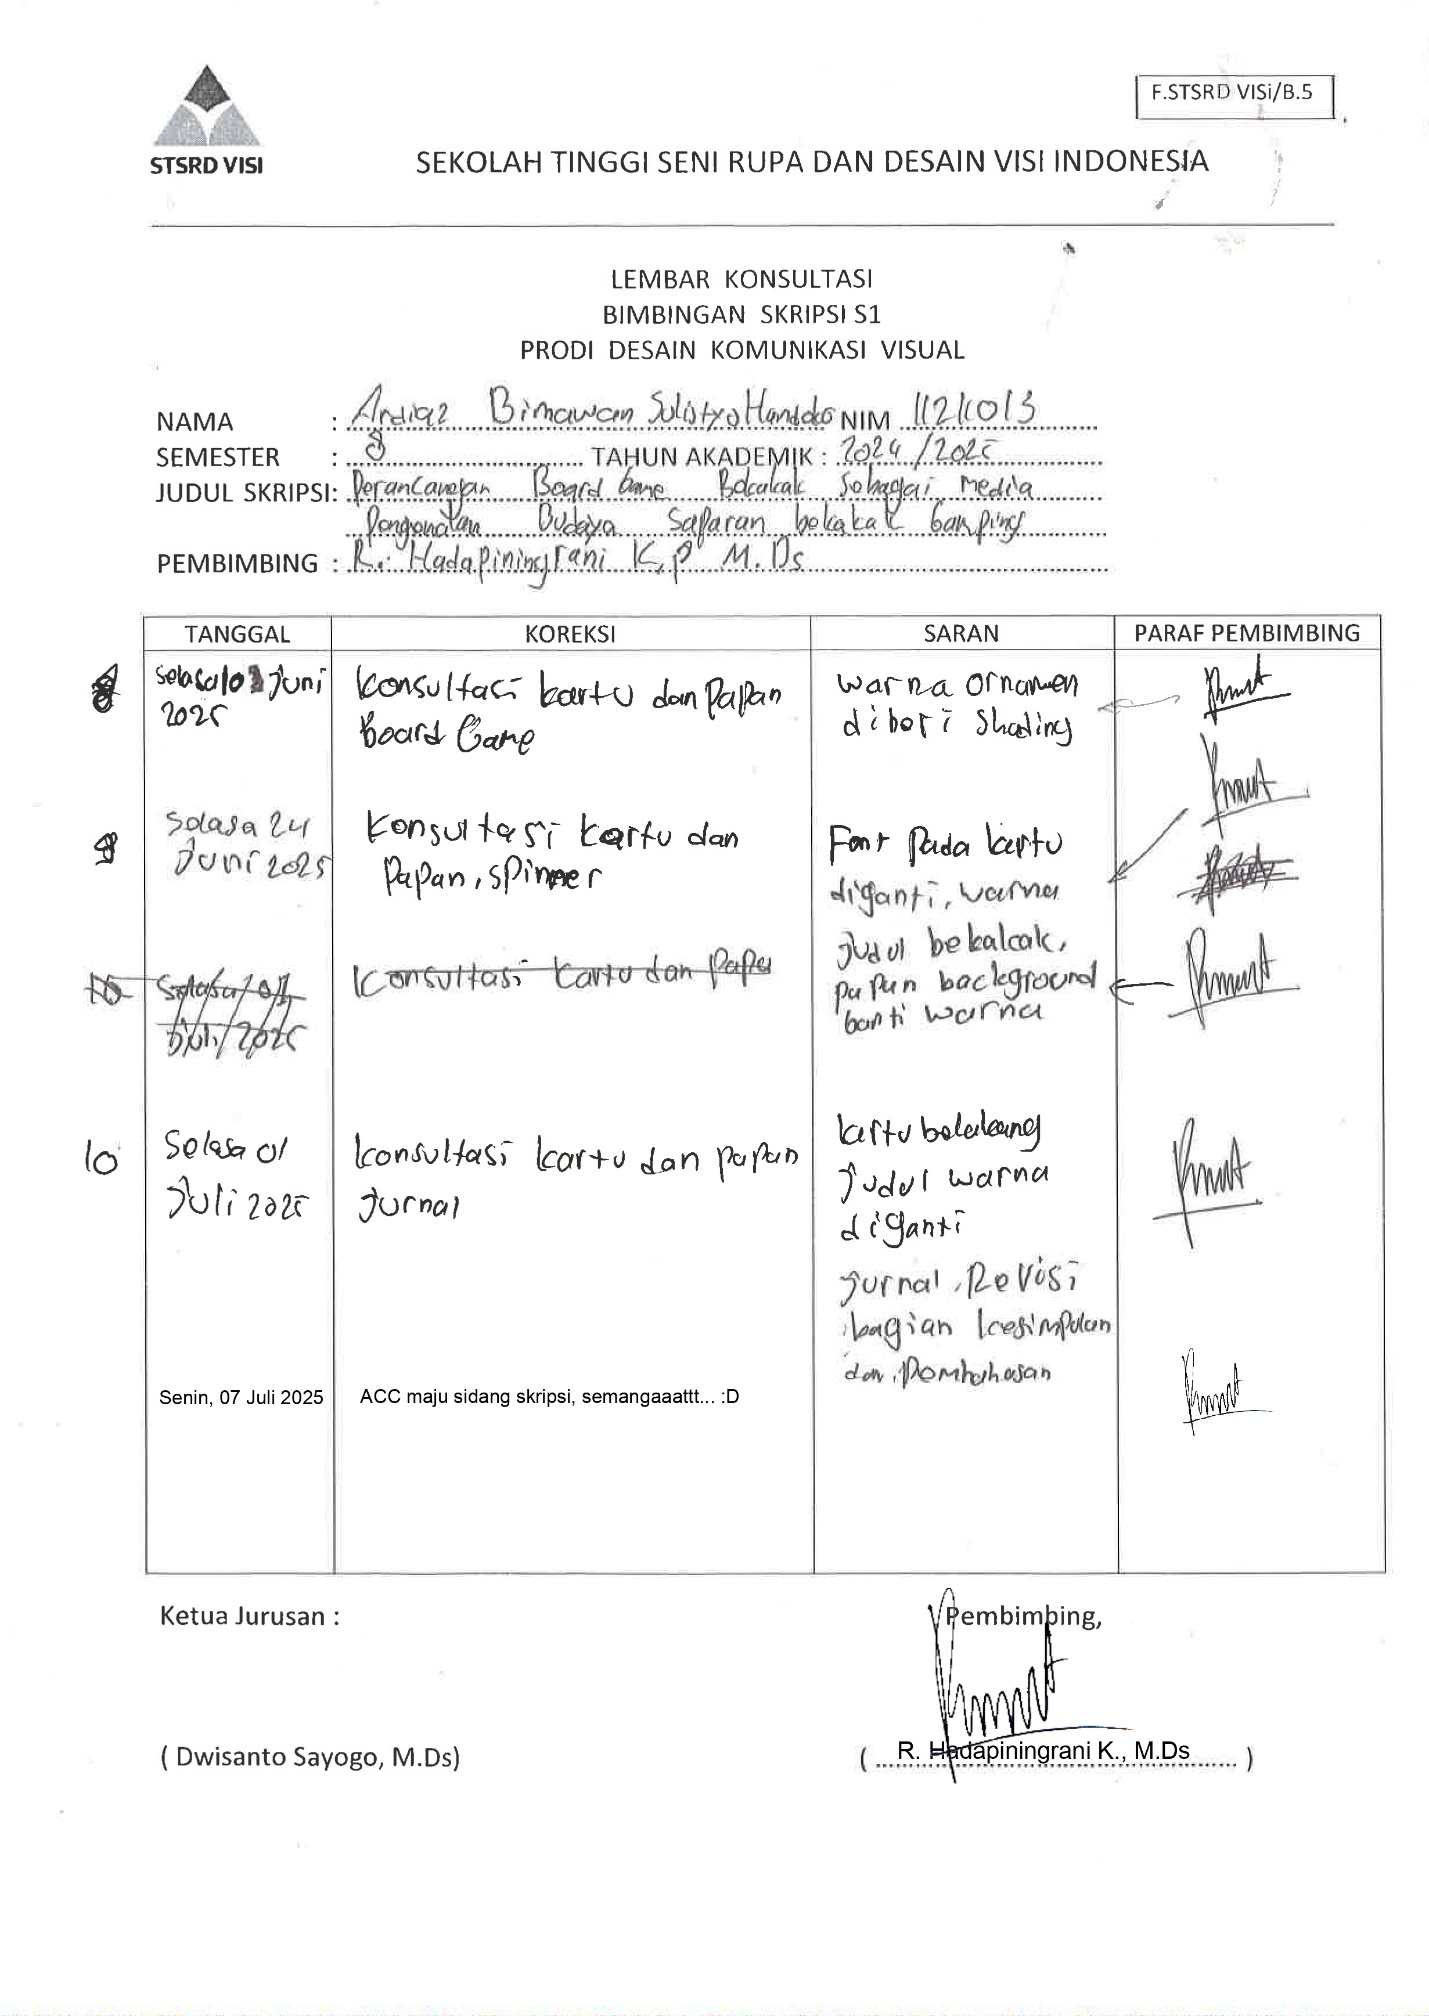 F.STSRD VISi/B.5
STSRD VISI
SEKOLAH TINGGI SENI RUPA DAN DESAIN VISI INDONESIA
LEMBAR KONSULTASI
BIMBINGAN SKRIPSI S1
PRODI DESAIN KOMUNIKASI VISUAL
NAMA : Ardiaz Bimawan Sulistyo Handoko NIM 11211013
SEMESTER : 8 TAHUN AKADEMIK : 2024/2025
JUDUL SKRIPSI: Perancangan Board Game Bekakak Sebagai media
Pengenalan Budaya Saparan bekakak Gamping
PEMBIMBING : R. Hadapiningrani K.P M.Ds
TANGGAL KOREKSI SARAN PARAF PEMBIMBING
Selasa 10 Juni
2025
Konsultasi kartu dan Papan
Board Game
warna ornamen
diberi Shading
9
Selasa 24
Juni 2025
Konsultasi kartu dan
Papan, Spinner
Font Pada kartu
diganti, warna
Judul bekakak,
papan background
ganti warna
10
Selasa 01
Juli 2025
Konsultasi kartu dan papan
Konsultasi kartu dan pape
10
Selasa 01
Juli 2025
Konsultasi kartu dan papan
Jurnal
kartu belakang
Judul warna
diganti
Jurnal, Revisi
bagian kesimpulan
dan Pembahasan
Senin, 07 Juli 2025 ACC maju sidang skripsi, semangaaattt... :D
Ketua Jurusan :
Pembimbing,
( Dwisanto Sayogo, M.Ds)
( R. Hadapiningrani K., M.Ds )